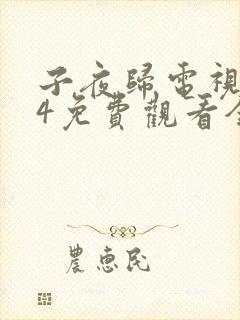 子夜歸電視
4免費觀看全
農惠民